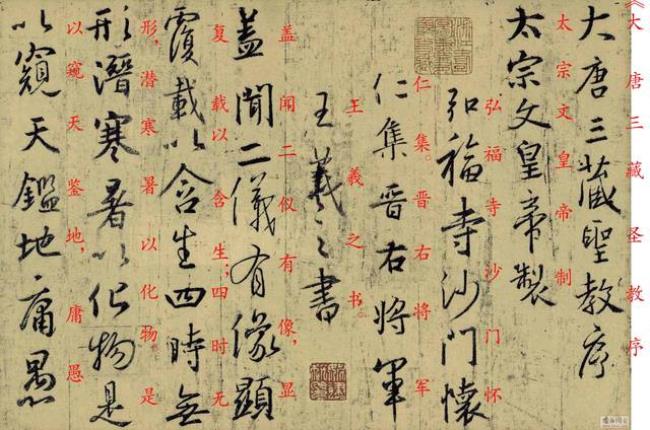 大唐三藏聖教序
《大唐三藏圣教序
太宗文皇帝製
太宗文皇帝制
弘福寺沙門懷
弘福寺沙门怀
仁集晉右將軍
仁集。晋右将军
王羲之書
王羲之书。
蓋聞二儀有像顯
盖闻二仪有像，显
覆載以含生四時無
复载以含生；四时无
形潛寒暑以化物是
形，潜寒暑以化物。是
以窺天鑑地庸愚
以窥天鉴地，庸愚